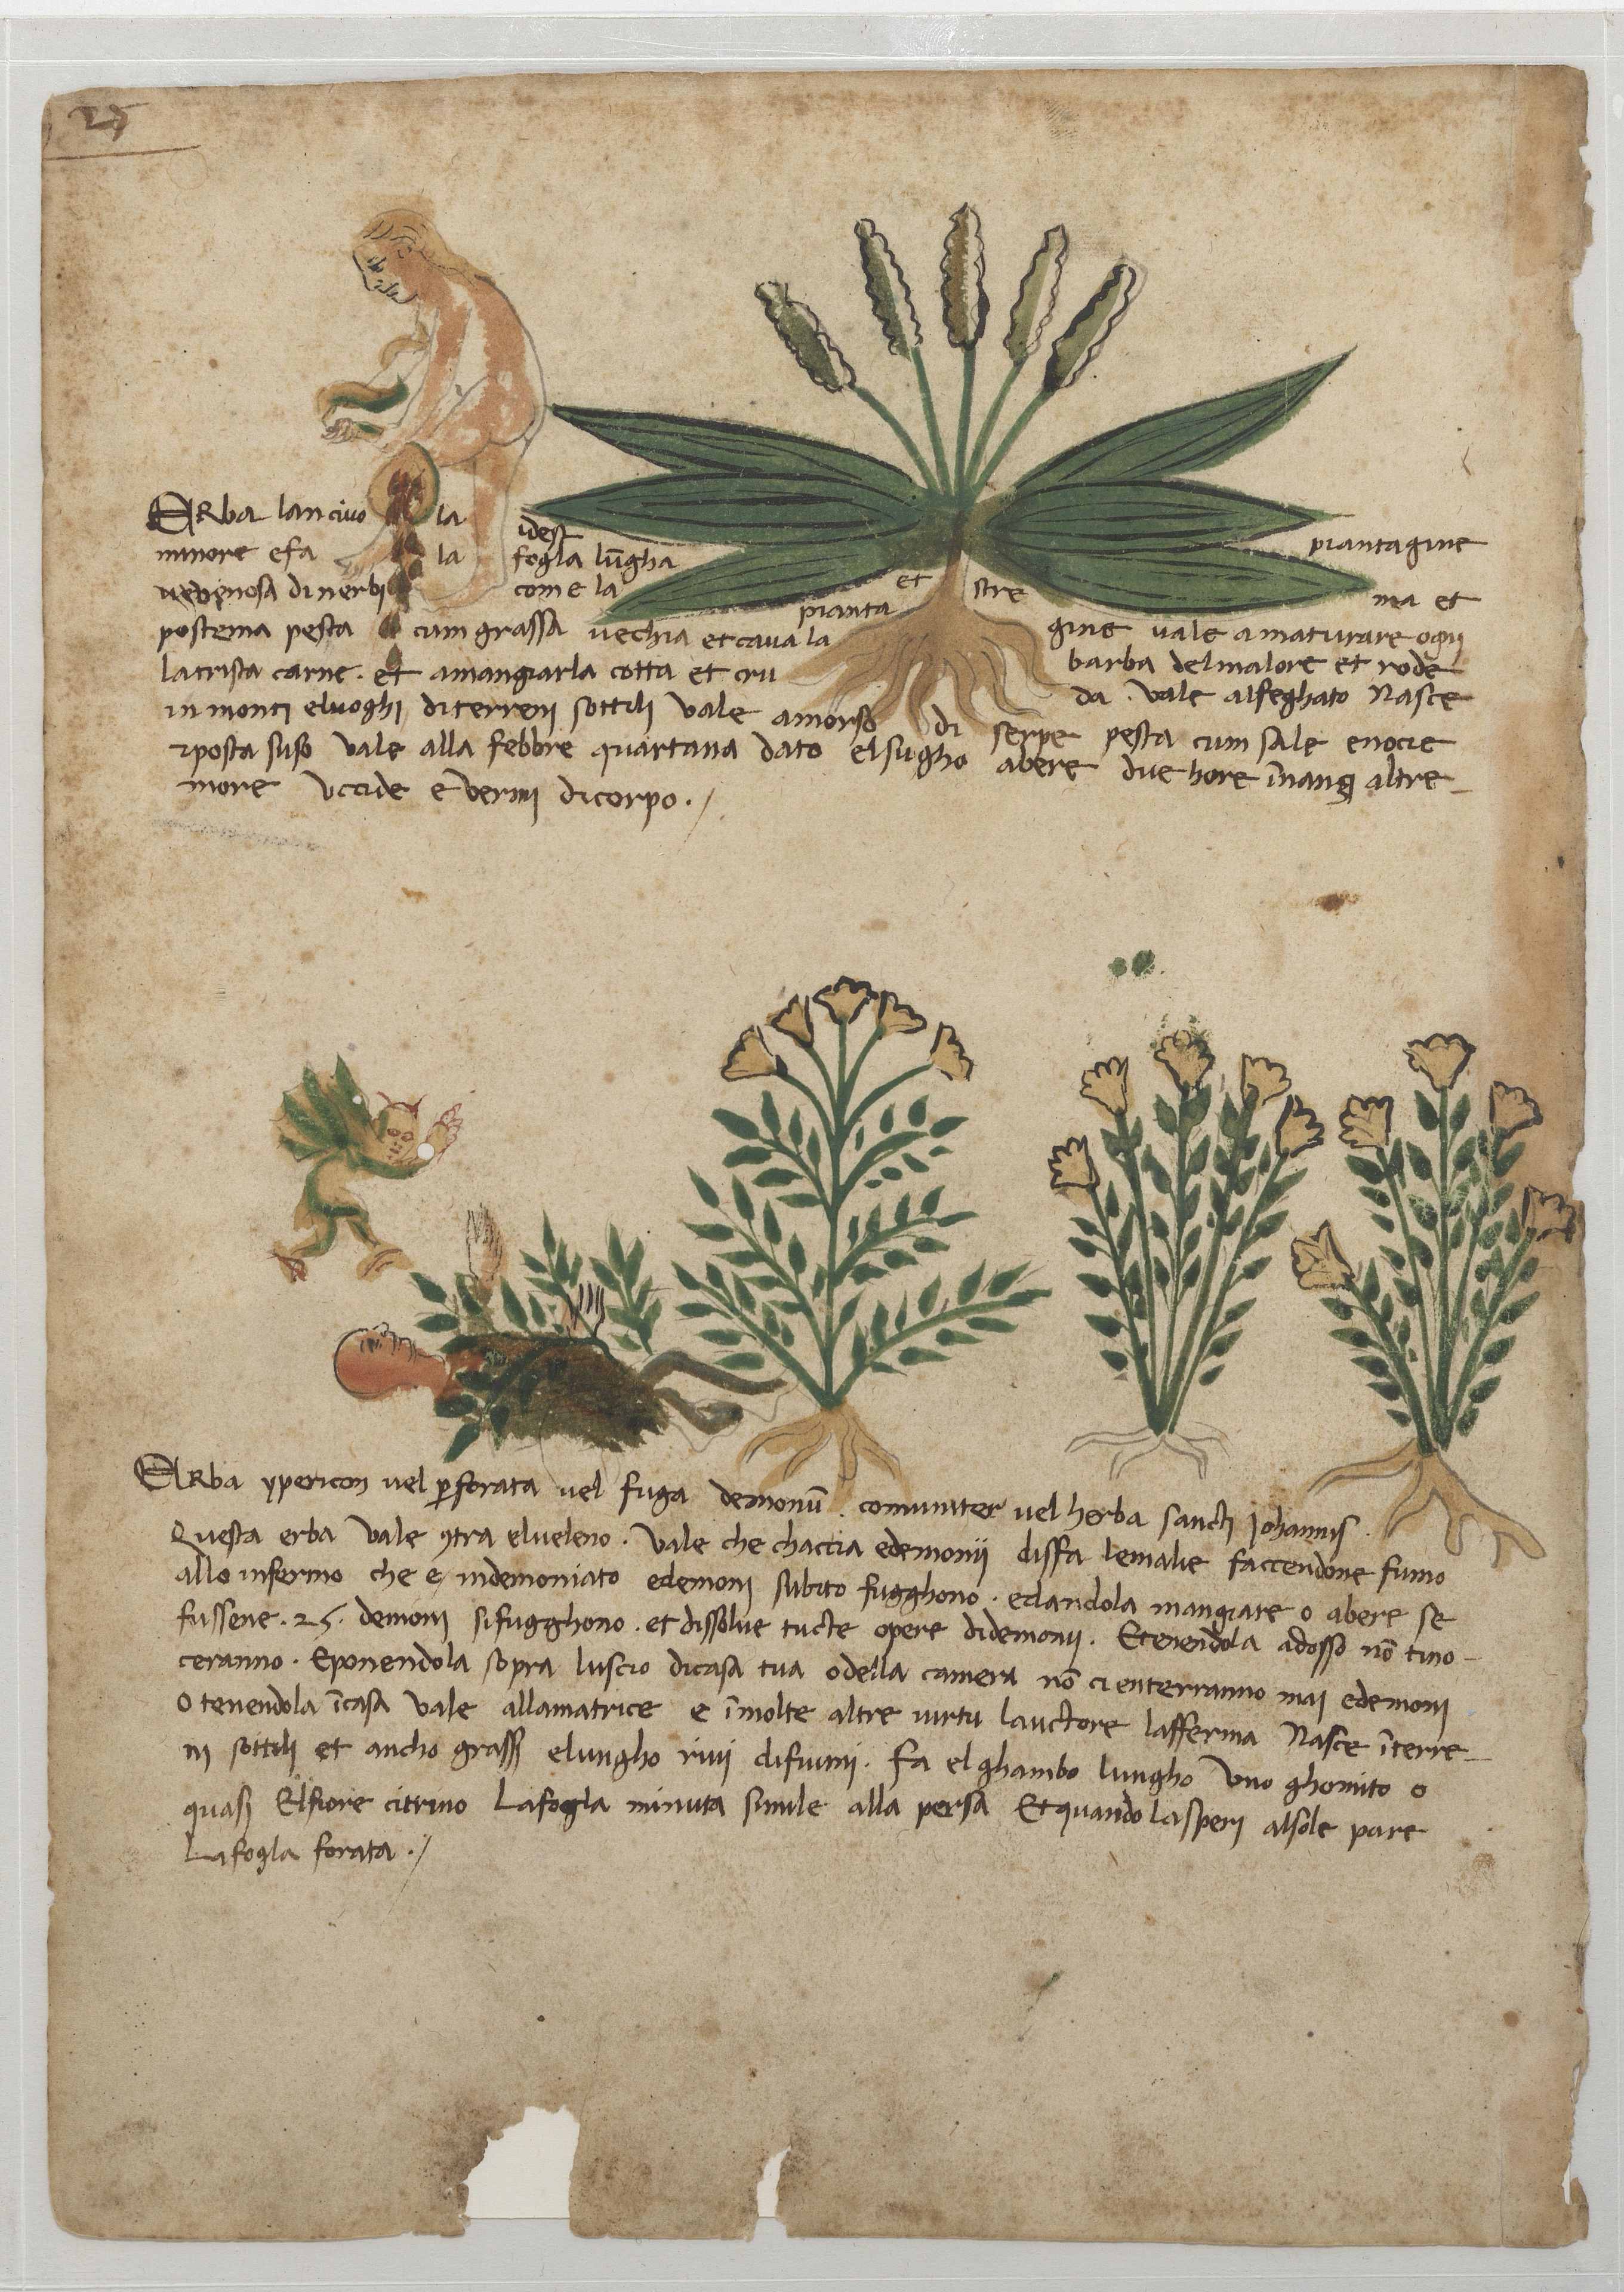 25
ERba lanciuo la la idest piantagine
minore e fa la fogla lũgha et stre ma et
uenenosa di nerbi come la pianta gine vale a maturare ogni
postema pesta cum grassa vechia et caua la barba del malore et rode
la trista carne · et a mangiarla cotta et cru da · vale al feghato Nasce
in monti e luoghi di terreni sottili vale a morso di serpe pesta cum sale e nocie
posta suso vale alla febbre quartana dato el sugho a bere due hore ĩnanȝ altre
more vccide e vermi di corpo ·/
ERba ypericon uel ꝑforata uel fuga demonũ · comuniter uel herba sancti Johannis ·
Questa erba vale ꝯtra el ueleno · vale che chaccia e demonii disfa le malie faccendone fumo
allo infermo che e indemoniato e demoni subito fugghono · e dandola mangiare o a bere se
fussene · 25 · demoni si fugghono · et dissolue tucte opere di demonii · E tenendola adosso nõ ti no-
ceranno · E ponendola sopra luscio di casa tua o della camera nõ ci enterranno mai e demoni
O tenendola ĩ casa vale alla matrice e ĩ molte altre uirtu lauctore lafferma Nasce ĩ terre-
ni sottili et ancho grassi e lungho riui di fiumi · Fa el ghambo lungho vno ghomito o
quasi El fiore citrino La fogla minuta simile alla persa Et quando la speri al sole pare
La fogla forata ·/